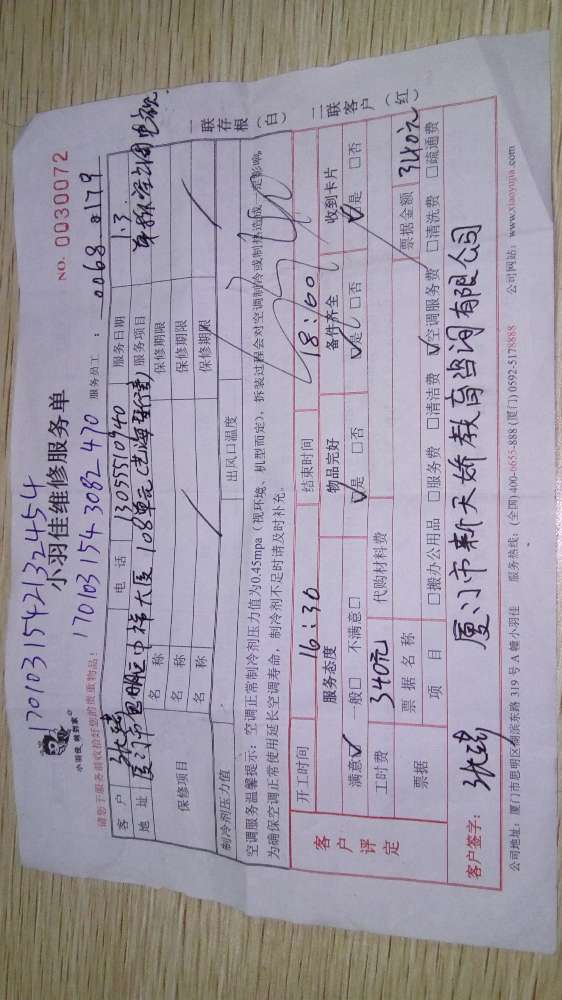 1701031542132454
小羽佳维修服务单
NO. 0030072
1701031543082470
小羽佳 帮到家
请您于服务前收拾好您的贵重物品!
服务员工: 0068 0179
客户 张瑞 电话 13055510940 服务日期 1.3
地址 厦门市思明区中祥大厦108单元 服务项目
保修项目
名称 保修期限
名称 保修期限
名称 保修期限
制冷剂压力值 出风口温度
空调服务温馨提示:空调正常制冷剂压力值为0.45mpa(视环境、机型而定),拆装过程会对空调制冷或制热造成一定影响,
为确保空调正常使用延长空调寿命,制冷剂不足时请及时补充。
一联存根(白)
二联客户(红)
客户评定
开工时间 16:30 结束时间 18:00
服务态度 物品完好 备件齐全 收到卡片
满意☑ 一般□ 不满意□ ☑是 □否 ☑是 □否 ☑是 □否
工时费 340元 代购材料费
票据 票据名称 票据金额 340元
项目 □搬办公用品 □服务费 □清洁费 ☑空调服务费 □清洗费 □疏通费
客户签字: 张瑞 厦门市新天娇教育咨询有限公司
公司地址:厦门市思明区湖滨东路319号A幢小羽佳 服务热线:(全国)400-6655-888 (厦门) 0592-5178888 公司网站:www.xiaoyujia.com